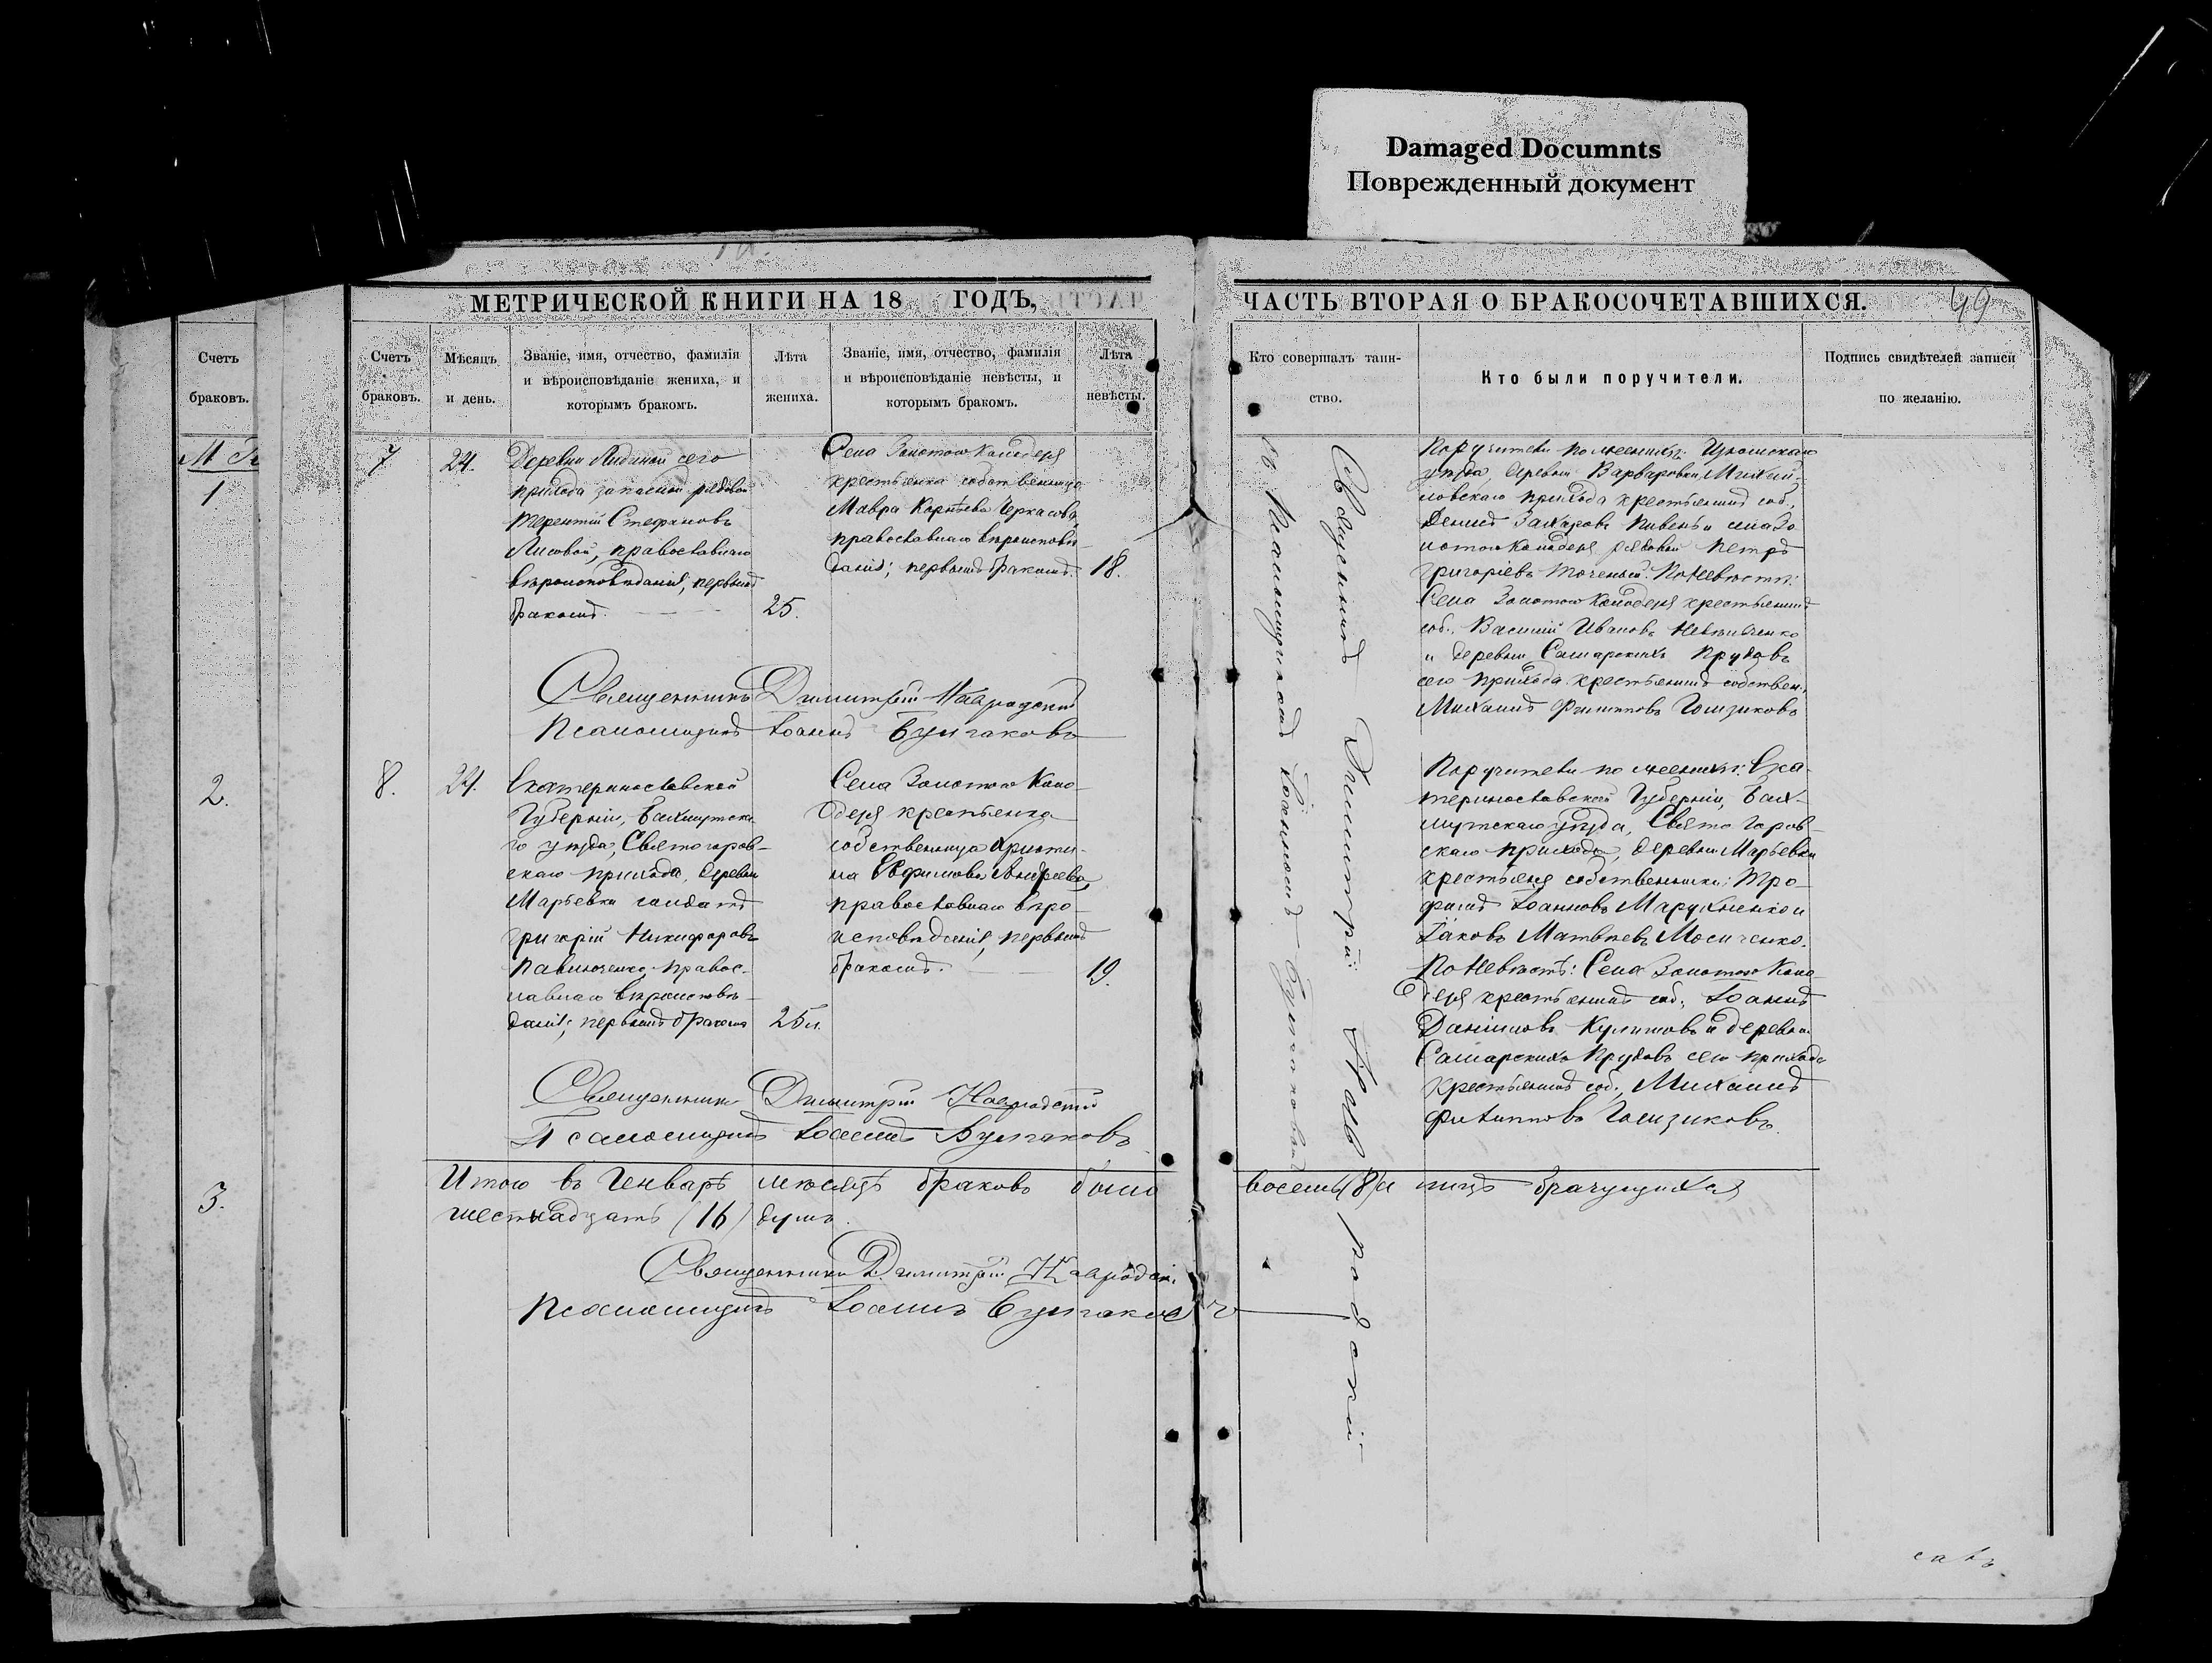 Damaged Documnts
Поврежденный документ
МЕТРИЧЕСКОЙ КНИГИ НА 18 ГОДЪ,
ЧАСТЬ ВТОРАЯ О БРАКОСОЧЕТАВШИХСЯ.
49
Счетъ
браковъ.
1
2.
3.
Счетъ
браковъ.
Мѣсяцъ
и день.
Званіе, имя, отчество, фамилія
и вѣроисповѣданіе жениха, и
которымъ бракомъ.
Лѣта
жениха.
Званіе, имя, отчество, фамилія
и вѣроисповѣданіе невѣсты, и
которымъ бракомъ.
Лѣта
невѣсты.
Кто совершалъ таин-
ство.
Кто были поручители.
Подпись свидѣтелей записи
по желанію.
7
24.
Деревни Лидиной сего
прихода запасной рядовой
Терентій Стефановъ
Лисовой, православнаго
вѣроисповѣданія, первымъ
бракомъ.
25.
Села Золотого Колодезя
крестьянка собственница
Мавра Корнѣева Черкасова,
православнаго вѣроисповѣ-
данія; первымъ бракомъ.
18.
Священникъ Димитрій Навродскій
Псаломщикъ Іоаннъ Булгаковъ
Священникъ Димитрій Навродскій
съ псаломщикомъ Іоанномъ Булгаковымъ
Поручители по женихѣ: Изюмскаго
уѣзда, деревни Варваровки Михай-
ловскаго прихода крестьянинъ соб.,
Денисъ Захаровъ Пивень и села Зо
лотого Колодезя рядовой Петръ
Григоріевъ Точеный. По невѣстѣ:
Села Золотого Колодезя крестьянинъ
соб., Василій Ивановъ
и деревни Самарскихъ Прудовъ
сего прихода крестьянинъ собствен.,
Михаилъ Филипповъ Голизиковъ
8.
24.
Екатеринославской
Губерніи, Бахмутска
го уѣзда, Святогоров-
скаго прихода, деревни
Марьевки солдатъ
Григорій Никифоровъ
Павлюченко, правос-
лавнаго вѣроисповѣ-
данія; первымъ бракомъ
25 л.
Села Золотого Коло-
дезя крестьянка
собственница Христи-
на Евфимова Андреева,
православнаго вѣро-
исповѣданія, первымъ
бракомъ.
19.
Священникъ Димитрій Навродскій
Псаломщикъ Іоаннъ Булгаковъ
Поручители по женихѣ: Ека-
теринославской Губерніи, Бах-
мутскаго уѣзда, Святогоров-
скаго прихода, деревни Марьевки
крестьяне собственники: Тро-
фимъ Іоанновъ Марухненко и
Іаковъ Матвѣевъ Мосиченко.
По невѣстѣ: Села Золотого Коло-
дезя крестьянинъ соб., Іоаннъ
Даніиловъ Куликовъ и деревни
Самарскихъ Прудовъ сего прихода
крестьянинъ соб., Михаилъ
Филипповъ Голизиковъ.
Итого въ Генварѣ мѣсяцѣ браковъ было восемь (8) и лицъ брачущихся
шестнадцать (16) душъ.
Священникъ Димитрій Навродскі.
Псаломщикъ Іоаннъ Булгаковъ